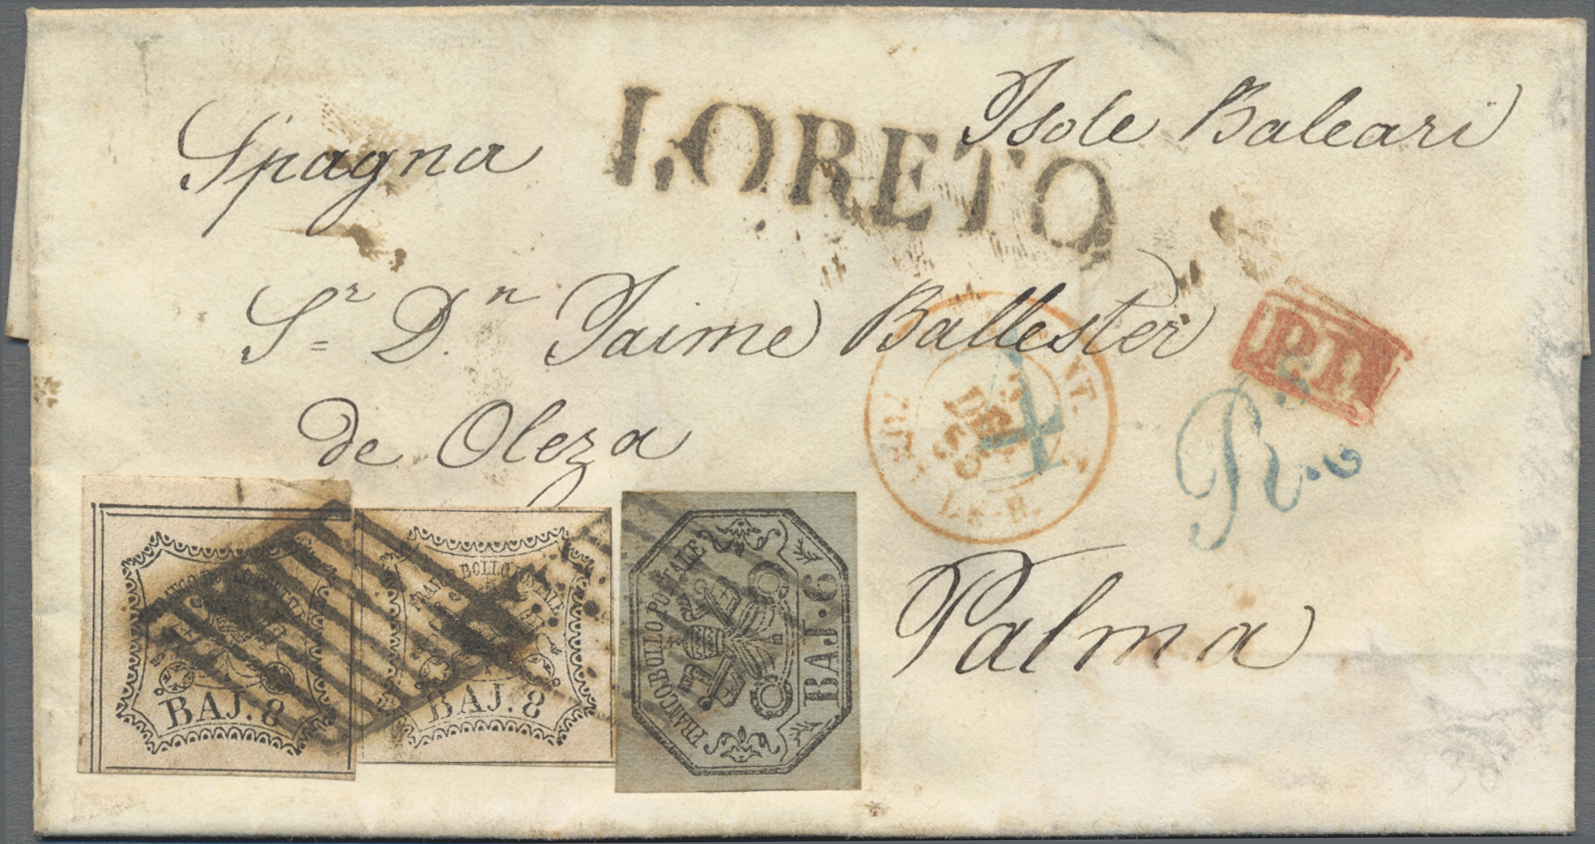 Spagna
Isole Baleari
LORETO
Sr. Dn. Jaime Ballester
de Oleza
P.P.
DEC
55
R.
Palma
FRANCO BOLLO POSTALE
BAJ. 8
FRANCO BOLLO POSTALE
BAJ. 8
FRANCO BOLLO POSTALE
BAJ. 6